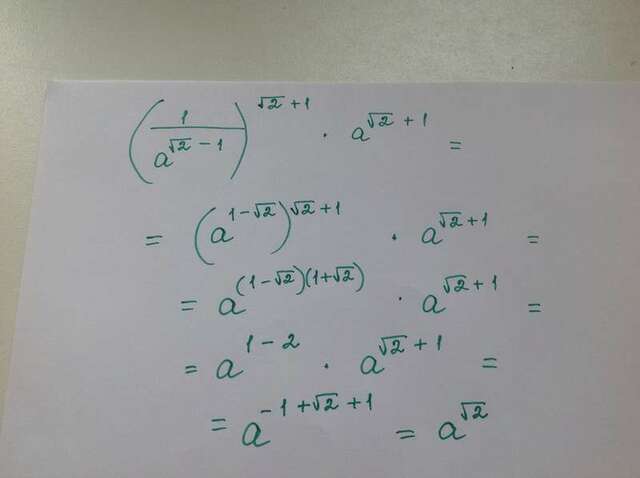 (1/a^(√2 − 1))^(√2 + 1) · a^(√2 + 1) =
= (a^(1−√2))^(√2+1) · a^(√2+1) =
= a^((1−√2)(1+√2)) · a^(√2+1) =
= a^(1−2) · a^(√2+1) =
= a^(−1+√2+1) = a^(√2)